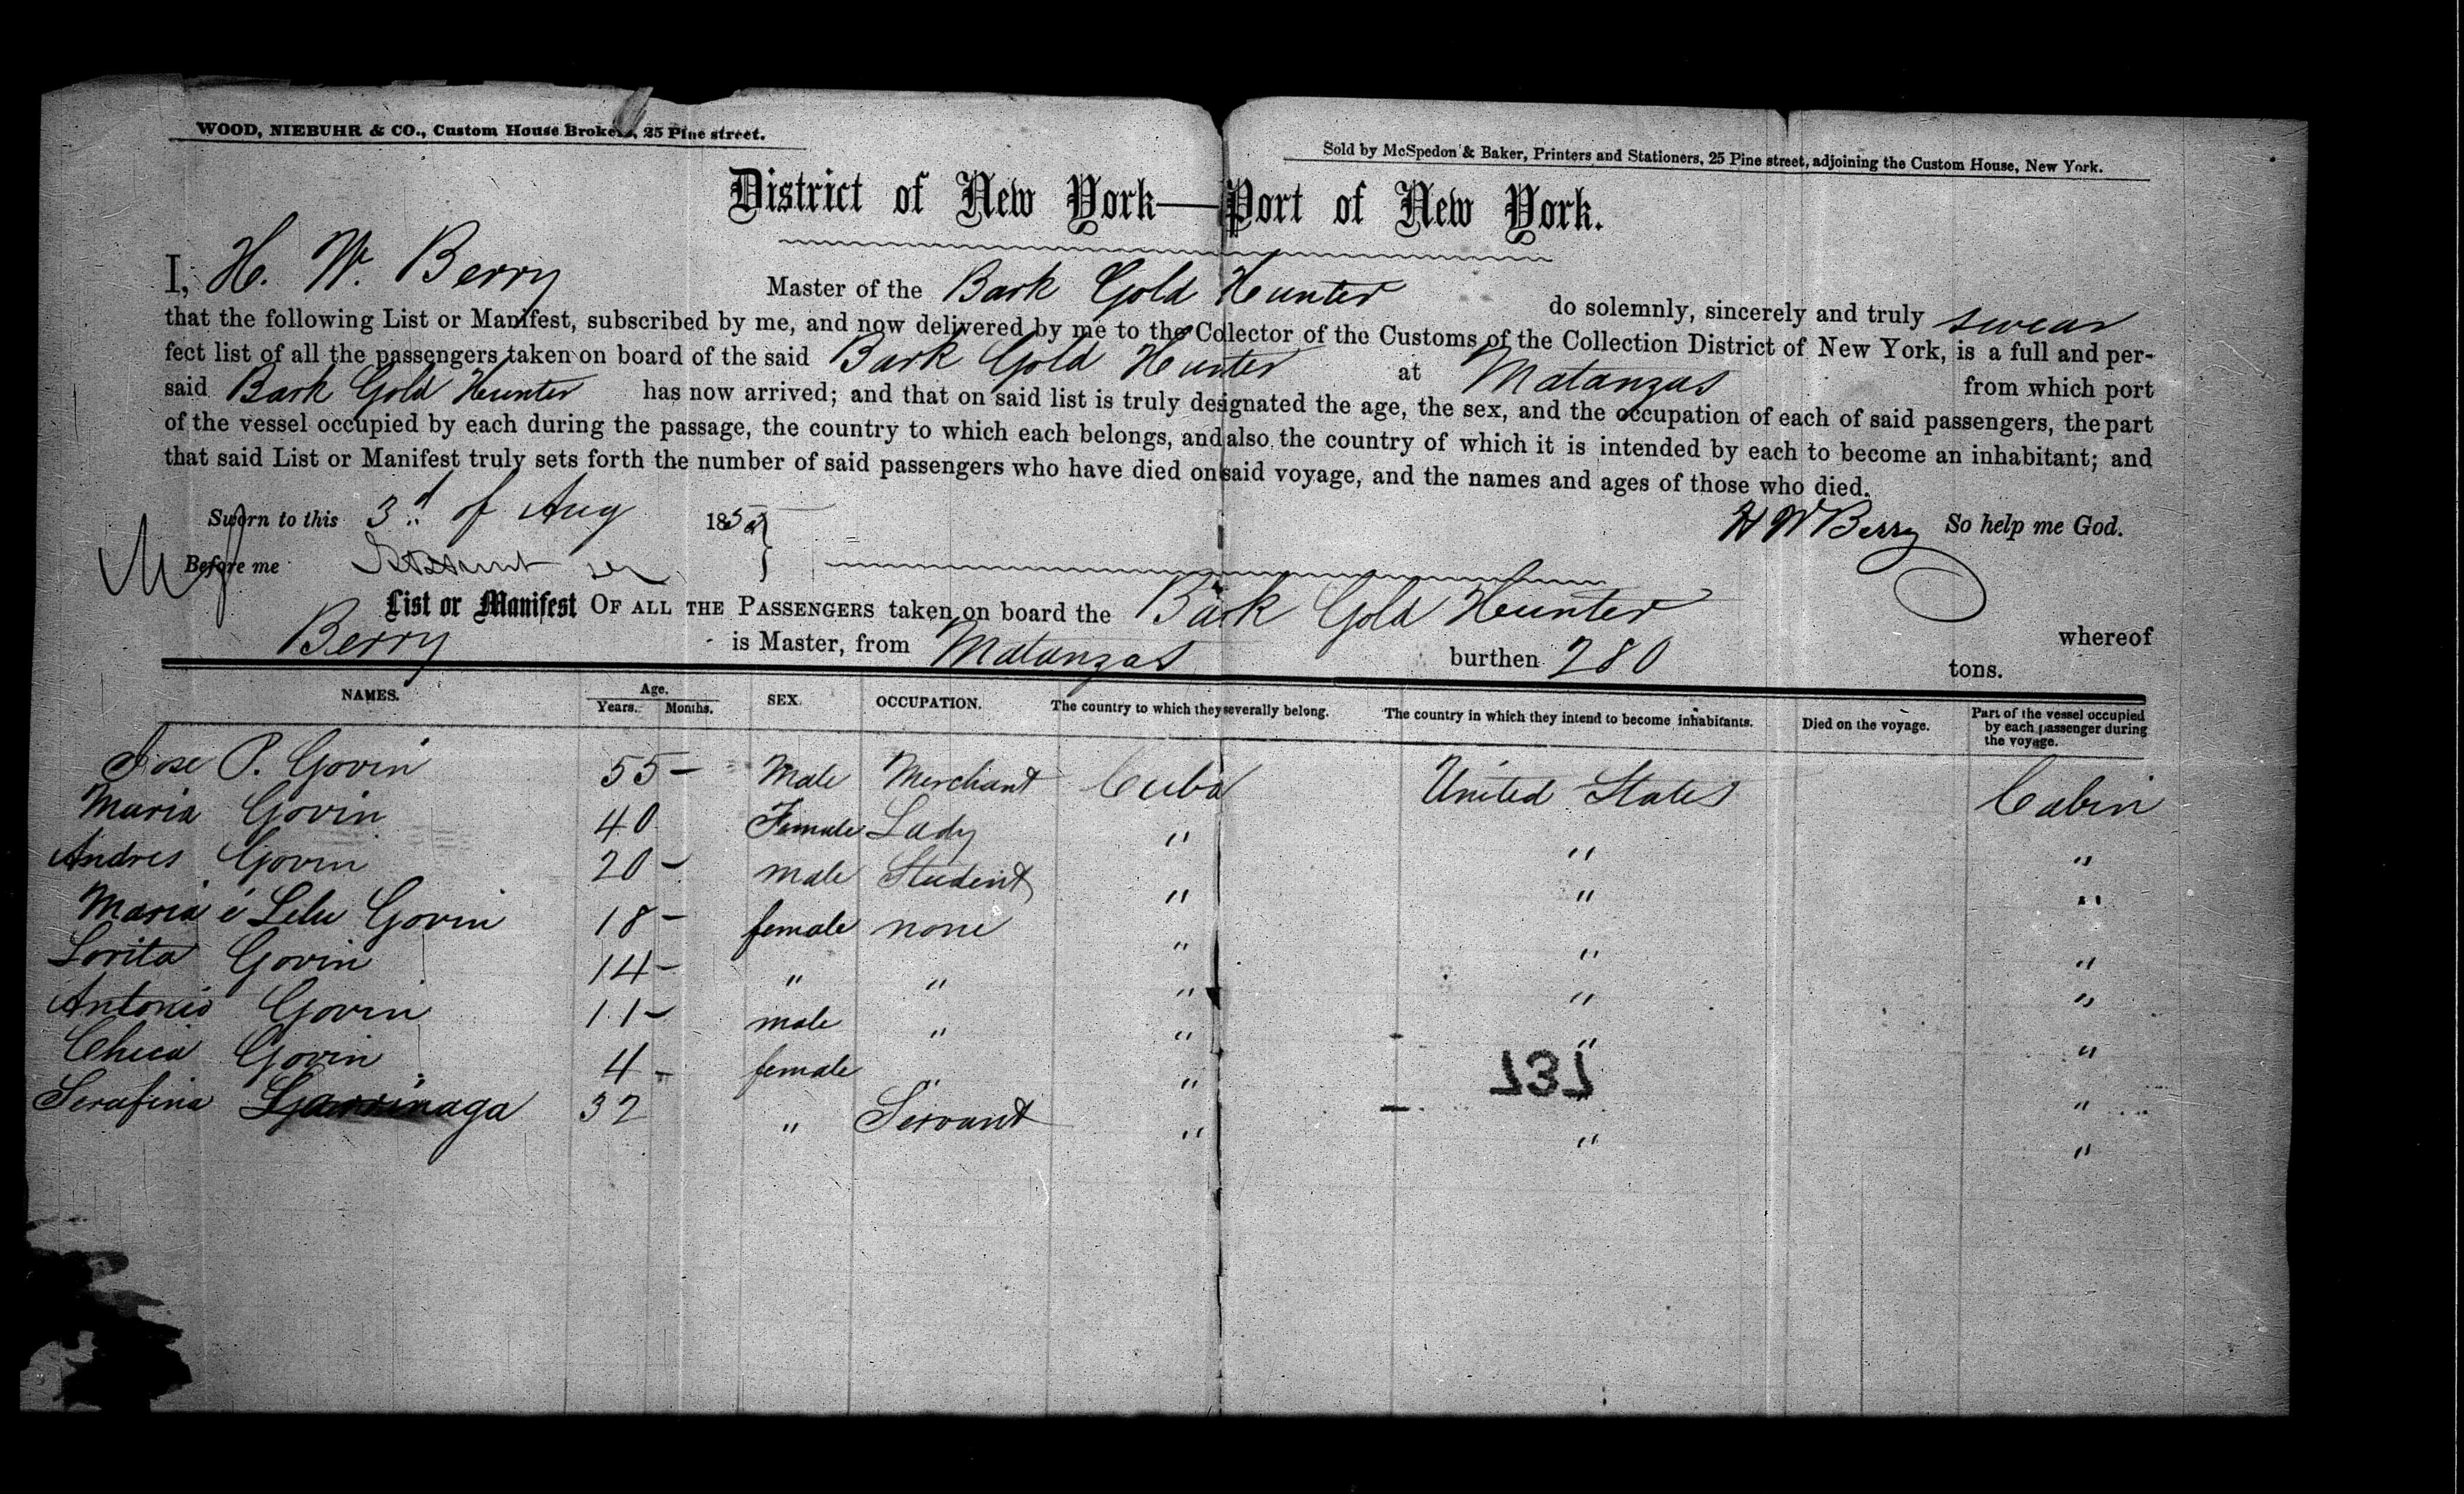 WOOD, NIEBUHR & CO., Custom House Brokers, 25 Pine street.
Sold by McSpedon & Baker, Printers and Stationers, 25 Pine street, adjoining the Custom House, New York.
District of New York—Port of New York.
I, H. W. Berry Master of the Bark Gold Hunter do solemnly, sincerely and truly swear
that the following List or Manifest, subscribed by me, and now delivered by me to the Collector of the Customs of the Collection District of New York, is a full and per-
fect list of all the passengers taken on board of the said Bark Gold Hunter at Matanzas from which port
said Bark Gold Hunter has now arrived; and that on said list is truly designated the age, the sex, and the occupation of each of said passengers, the part
of the vessel occupied by each during the passage, the country to which each belongs, and also the country of which it is intended by each to become an inhabitant; and
that said List or Manifest truly sets forth the number of said passengers who have died on said voyage, and the names and ages of those who died.
Sworn to this 3d of Aug 185 H W Berry So help me God.
Before me
List or Manifest OF ALL THE PASSENGERS taken on board the Bark Gold Hunter whereof
Berry is Master, from Matanzas burthen 280 tons.
NAMES. Age. Years. Months. SEX. OCCUPATION. The country to which they severally belong. The country in which they intend to become inhabitants. Died on the voyage. Part of the vessel occupied by each passenger during the voyage.
Jose P. Govin 55 - Male Merchant Cuba United States Cabin
Maria Govin 40 Female Lady " " "
Andres Govin 20 - male Student " " "
Maria é Lelu Govin 18 - female none " " "
Lorita Govin 14 - " " " " "
Antonio Govin 11 - male " " " "
Chica Govin 4 - female " " " "
Serafina Larrinaga 32 " Servant " " "
737